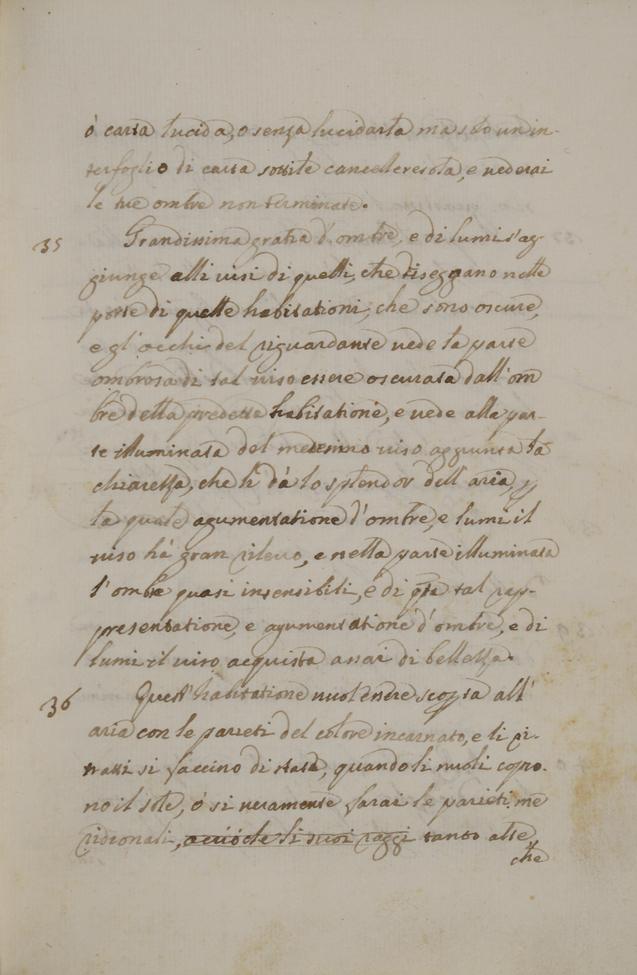 ò carta lucida, o senza lucidarla ma solo un in-
terfoglio di carta sottile cancelleresca, e vederai
le tue ombre non terminate.
35 Grandissima gratia d'ombre, e di lumi s'ag-
giunge alli visi di quelli, che siseggano nelle
porte di quelle habitationi, che sono oscure,
e gl'occhi del riguardante vede la parte
ombrosa di tal viso essere oscurata dall'om
bre della predetta habitatione, e vede alla par-
te illuminata del medesimo viso aggiunta la
chiarezza, che li dà lo splendor dell'aria, p
la quale agumentatione d'ombre, e lumi il
viso hà gran rilevo, e nella parte illuminata
l'ombre quasi insensibili, e di qta tal rap-
presentatione, e agumentatione d'ombre, e di
lumi il viso acquista assai di bellezza.
36 Quest'habitatione vuol essere scoperta all'
aria con le parieti del colore incarnato, e li ri-
tratti si faccino di state, quando li nuoli copro-
no il sole, ò si veramente farai le parieti me
ridionali, acciò che li suoi raggi tanto alte,
che